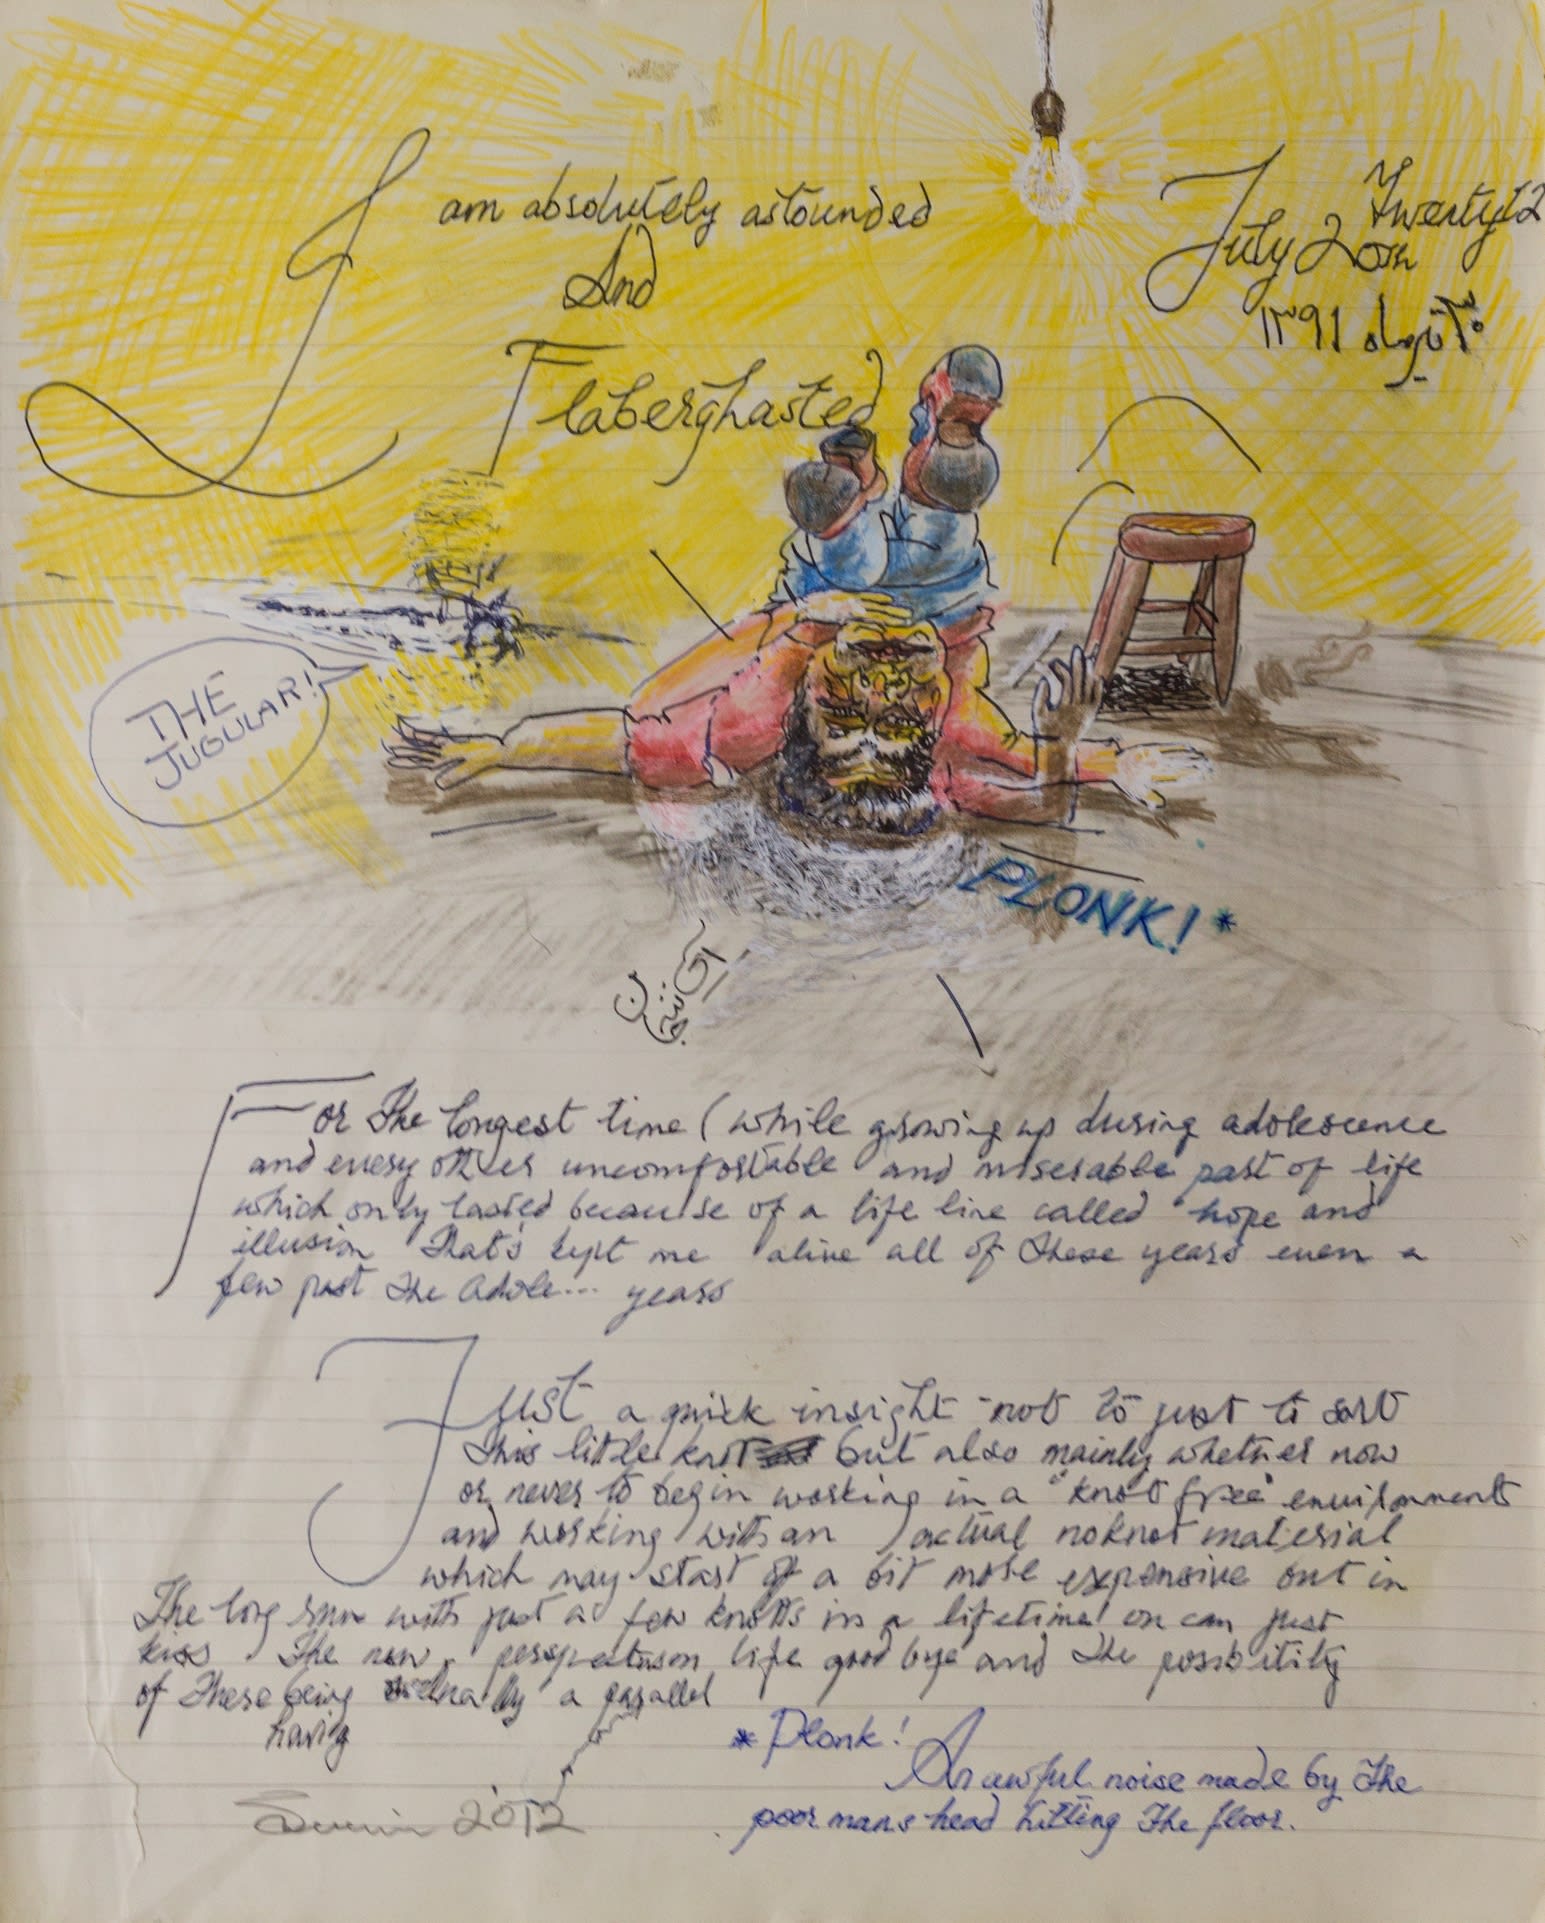 I am absolutely astounded
And
Flaberghasted
Twenty12
July 20th
۱۳۹۱
THE
JUGULAR!
PLONK!*
For the longest time (while growing up during adolescence
and every other uncomfortable and miserable part of life
which only lasted because of a life line called hope and
illusion That's kept me alive all of these years even a
few past the adole... years
Just a quick insight not to just to sort
this little knot but also mainly whether now
or never to begin working in a "knot free" environment
and working with an actual noknot material
which may start of a bit more expensive but in
the long run with just a few knots in a lifetime on can just
kiss the new life good bye and the possibility
of these being a parallel
having
*Plonk!
An awful noise made by the
poor mans head hitting the floor.
2012